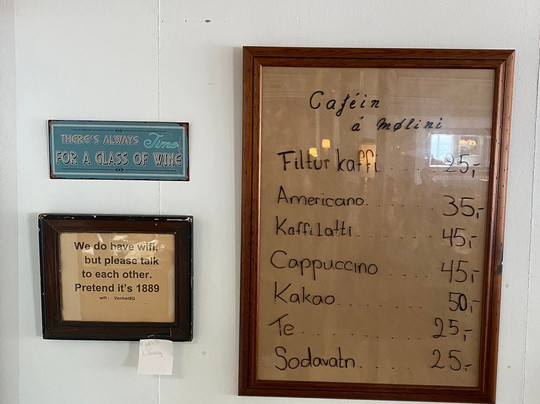 THERE'S ALWAYS Time
FOR A GLASS OF WINE
We do have wifi,
but please talk
to each other.
Pretend it's 1889
wifi :
Caféin
á mølini
Filtur kaffi 25,-
Americano. 35,-
Kaffi latti 45,-
Cappuccino 45,-
Kakao 50,-
Te 25,-
Sodavatn. 25,-